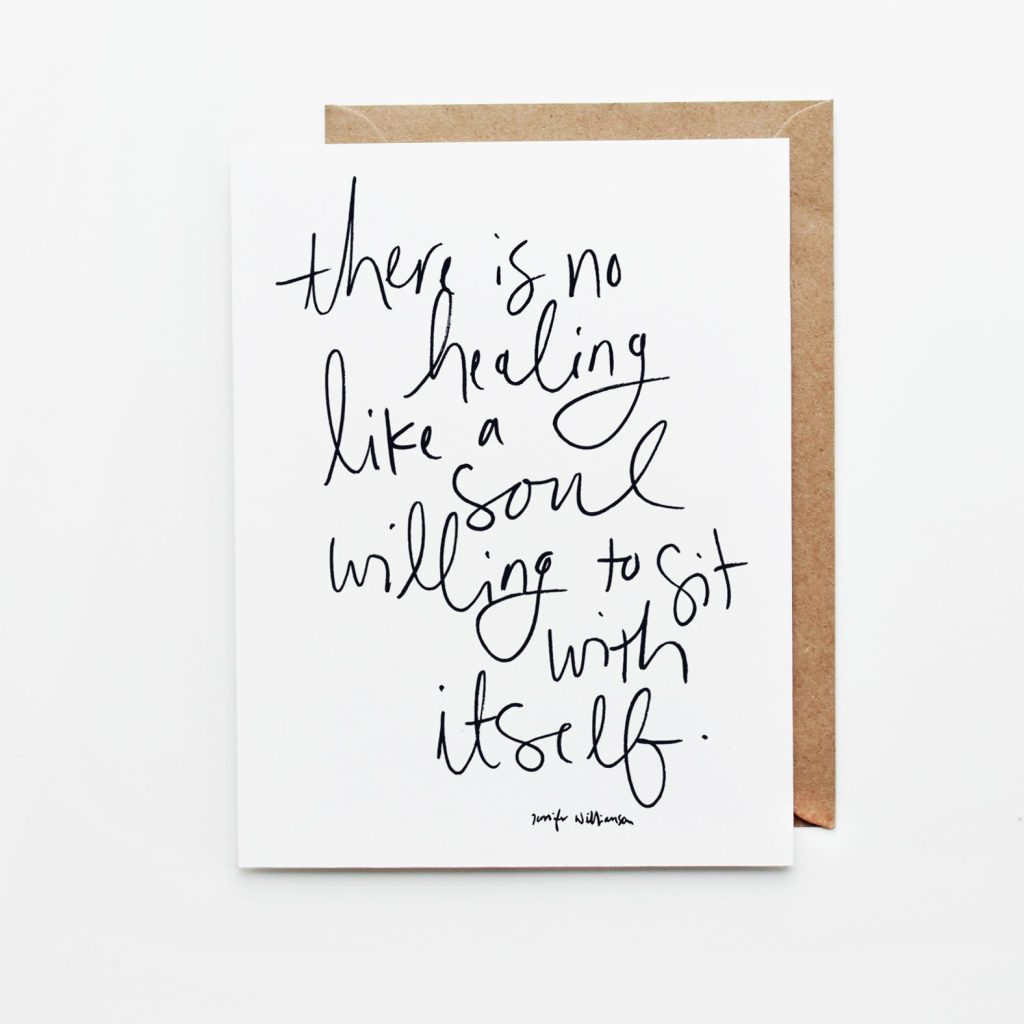 there is no
healing
like a
soul
willing to sit
with
itself.
Jennifer Williamson